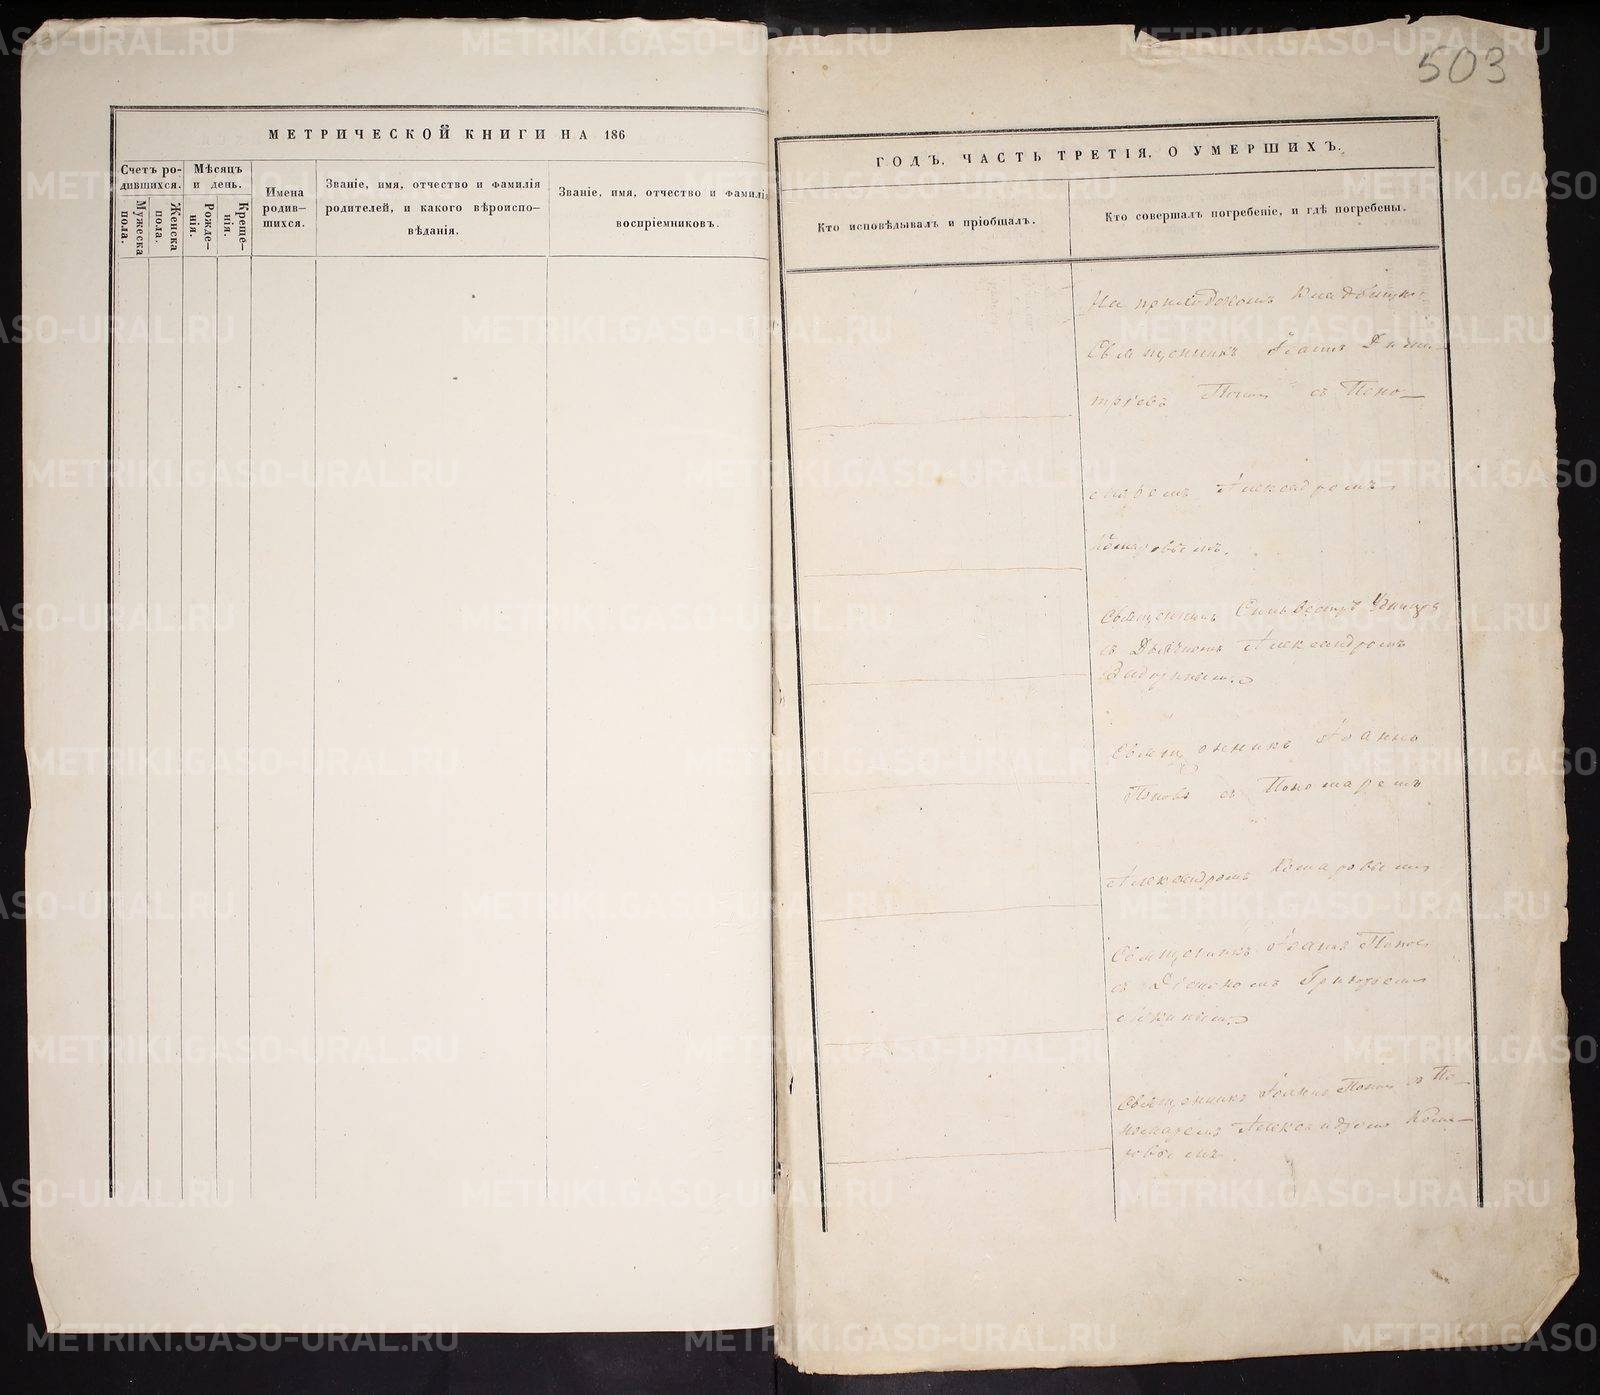 503
МЕТРИЧЕСКОЙ КНИГИ НА 186
Счетъ ро-
дившихся.
Мѣсяцъ
и день.
Мужеска
пола.
Женска
пола.
Рожде-
нія.
Креще-
нія.
Имена
родив-
шихся.
Званіе, имя, отчество и фамилія
родителей, и какого вѣроиспо-
вѣданія.
Званіе, имя, отчество и фамилія
воспріемниковъ.
ГОДЪ. ЧАСТЬ ТРЕТІЯ. О УМЕРШИХЪ.
Кто исповѣдывалъ и пріобщалъ.
Кто совершалъ погребеніе, и гдѣ погребены.
На приходскомъ кладбищѣ
Священникъ Іоаннъ Дими-
тріевъ Поповъ съ Поно-
маремъ Александромъ
Комаровымъ.
Священникъ Сильвестръ
съ Дьякономъ Александромъ
Священникъ Іоаннъ
Поповъ съ Пономаремъ
Александромъ Комаровымъ
Священникъ Іоаннъ Поповъ
съ Діакономъ Григоріемъ
Священникъ Іоаннъ Поповъ съ По-
номаремъ Александромъ Кома-
ровымъ.
METRIKI.GASO-URAL.RU